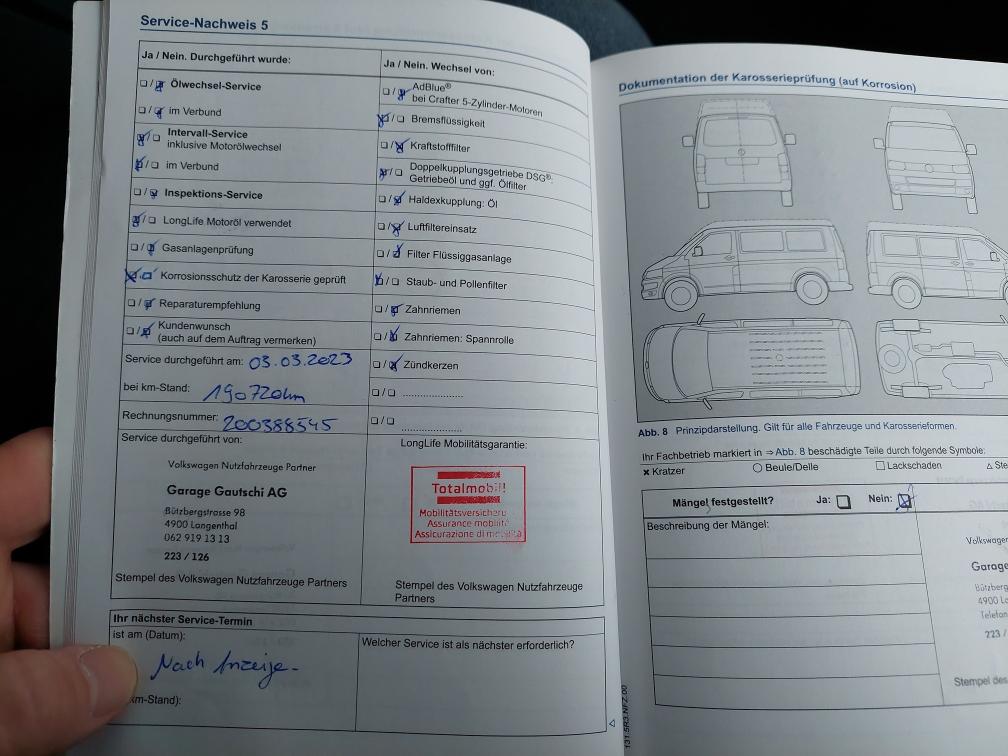 Service-Nachweis 5
Ja / Nein. Durchgeführt wurde:
Ölwechsel-Service
im Verbund
Intervall-Service
inklusive Motorölwechsel
im Verbund
Inspektions-Service
LongLife Motoröl verwendet
Gasanlagenprüfung
Korrosionsschutz der Karosserie geprüft
Reparaturempfehlung
Kundenwunsch
(auch auf dem Auftrag vermerken)
Service durchgeführt am: 03.03.2023
bei km-Stand: 190720km
Rechnungsnummer: 200388545
Service durchgeführt von:
Volkswagen Nutzfahrzeuge Partner
Garage Gautschi AG
Bützbergstrasse 98
4900 Langenthal
062 919 13 13
223 / 126
Stempel des Volkswagen Nutzfahrzeuge Partners
Ja / Nein. Wechsel von:
AdBlue®
bei Crafter 5-Zylinder-Motoren
Bremsflüssigkeit
Kraftstofffilter
Doppelkupplungsgetriebe DSG®:
Getriebeöl und ggf. Ölfilter
Haldexkupplung: Öl
Luftfiltereinsatz
Filter Flüssiggasanlage
Staub- und Pollenfilter
Zahnriemen
Zahnriemen: Spannrolle
Zündkerzen
LongLife Mobilitätsgarantie:
Totalmobil!
Mobilitätsversicheru
Assurance mobilité
Assicurazione di mobilità
Stempel des Volkswagen Nutzfahrzeuge
Partners
Ihr nächster Service-Termin
ist am (Datum):
Nach Anzeige-
km-Stand):
Welcher Service ist als nächster erforderlich?
Dokumentation der Karosserieprüfung (auf Korrosion)
Abb. 8 Prinzipdarstellung. Gilt für alle Fahrzeuge und Karosserieformen.
Ihr Fachbetrieb markiert in ⇒ Abb. 8 beschädigte Teile durch folgende Symbole:
✖ Kratzer ○ Beule/Delle □ Lackschaden △ Ste
Mängel festgestellt? Ja: Nein:
Beschreibung der Mängel:
Volkswagen
Garage
Bützberg
4900 La
Telefon
223 /
Stempel des
131.5R3.NFZ.00